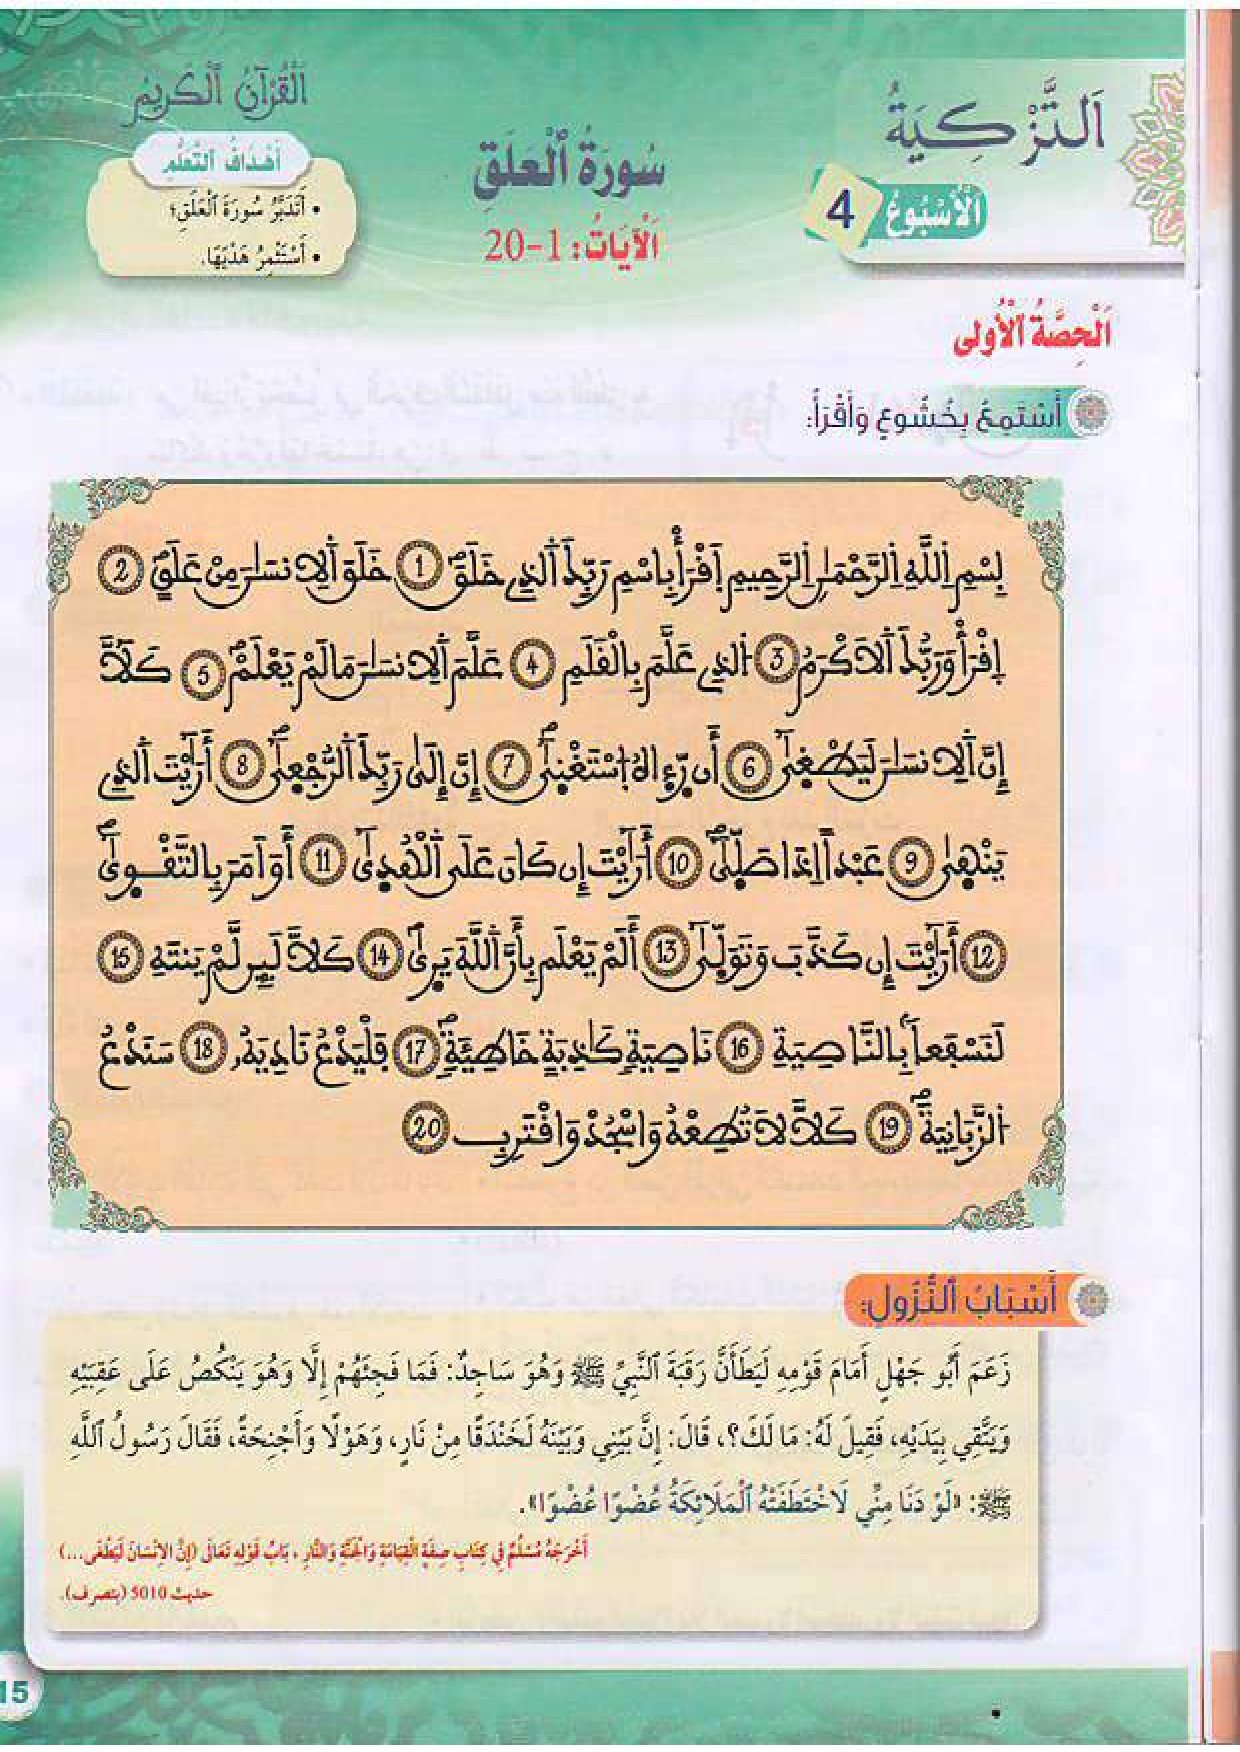 اَلتَّزْكِيَةُ
اَلْأُسْبُوعُ 4
سُورَةُ ٱلْعَلَقِ
اَلْآيَاتُ: 1-20
اَلْقُرْآنُ ٱلْكَرِيمُ
أَهْدَافُ ٱلتَّعَلُّمِ
• أَتَدَبَّرُ سُورَةَ ٱلْعَلَقِ؛
• أَسْتَثْمِرُ هَدْيَهَا.
اَلْحِصَّةُ ٱلْأُولَى
أَسْتَمِعُ بِخُشُوعٍ وَأَقْرَأُ:
بِسْمِ اِللَّهِ اِلرَّحْمَٰنِ اِلرَّحِيمِ اِقْرَأْ بِاسْمِ رَبِّكَ اَلذِے خَلَقَ 1 خَلَقَ اَلِانسَٰنَ مِنْ عَلَقٍ 2
اِقْرَأْ وَرَبُّكَ اَلَاكْرَمُ 3 اُلذِے عَلَّمَ بِالْقَلَمِ 4 عَلَّمَ اَلِانسَٰنَ مَا لَمْ يَعْلَمْ 5 كَلَّآ
إِنَّ اَلِانسَٰنَ لَيَطْغ۪ىٰٓ 6 أَن رّء۪اهُ اُسْتَغْن۪ىٰٓ 7 إِنَّ إِلَىٰ رَبِّكَ اَلرُّجْع۪ىٰٓ 8 أَرَٰٓيْتَ اَلذِے
يَنْه۪ىٰ 9 عَبْداً اِذَا صَلّ۪ىٰٓ 10 أَرَٰٓيْتَ إِن كَانَ عَلَى اَلْهُد۪ىٰٓ 11 أَوَ اَمَرَ بِالتَّقْو۪ىٰٓ
12 أَرَٰٓيْتَ إِن كَذَّبَ وَتَوَلّ۪ىٰٓ 13 أَلَمْ يَعْلَم بِأَنَّ اَللَّهَ يَر۪ىٰ 14 كَلَّا لَئِن لَّمْ يَنتَهِ 15
لَنَسْفَعاَۢ بِالنَّاصِيَةِ 16 نَاصِيَةٖ كَٰذِبَةٍ خَاطِئَةٖ 17 فَلْيَدْعُ نَادِيَهُۥ 18 سَنَدْعُ
اُلزَّبَانِيَةَ 19 كَلَّا لَا تُطِعْهُ وَاسْجُدْ وَاقْتَرِب 20
أَسْبَابُ ٱلنُّزُولِ:
زَعَمَ أَبُو جَهْلٍ أَمَامَ قَوْمِهِ لَيَطَأَنَّ رَقَبَةَ ٱلنَّبِيِّ ﷺ وَهُوَ سَاجِدٌ: فَمَا فَجِئَهُمْ إِلَّا وَهُوَ يَنْكُصُ عَلَى عَقِبَيْهِ
وَيَتَّقِي بِيَدَيْهِ، فَقِيلَ لَهُ: مَا لَكَ؟، قَالَ: إِنَّ بَيْنِي وَبَيْنَهُ لَخَنْدَقًا مِنْ نَارٍ، وَهَوْلًا وَأَجْنِحَةً، فَقَالَ رَسُولُ ٱللَّهِ
ﷺ: «لَوْ دَنَا مِنِّي لَاخْتَطَفَتْهُ ٱلْمَلَائِكَةُ عُضْوًا عُضْوًا».
أَخْرَجَهُ مُسْلِمٌ فِي كِتَابِ صِفَةِ الْقِيَامَةِ وَالْجَنَّةِ وَالنَّارِ ، بَابُ قَوْلِهِ تَعَالَى (إِنَّ الِانْسَانَ لَيَطْغَى...)
حديث 5010 (بتصرف).
15